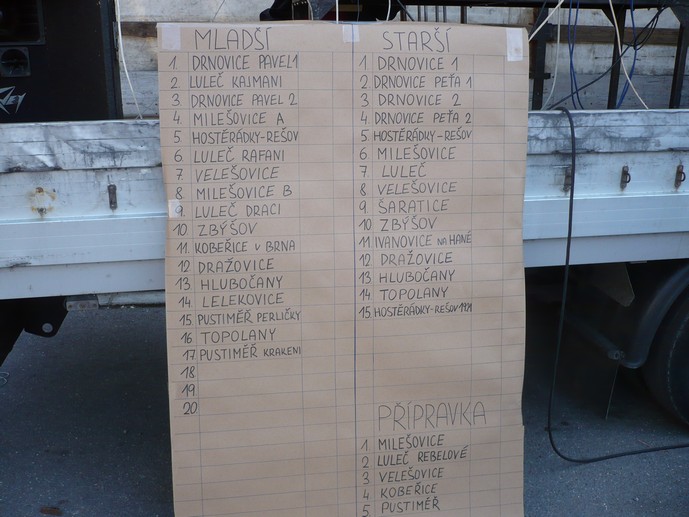 MLADŠÍ
1. DRNOVICE PAVEL 1
2. LULEČ KAJMANI
3 DRNOVICE PAVEL 2
4 MILEŠOVICE A
5 HOSTĚRÁDKY-REŠOV
6 LULEČ RAFANI
7. VELEŠOVICE
8 MILEŠOVICE B
9. LULEČ DRACI
10. ZBÝŠOV
11. KOBEŘICE U BRNA
12 DRAŽOVICE
13 HLUBOČANY
14 LELEKOVICE
15 PUSTIMĚŘ PERLIČKY
16 TOPOLANY
17 PUSTIMĚŘ KRAKENI
18
19
20
STARŠÍ
1 DRNOVICE 1
2. DRNOVICE PEŤA 1
3 DRNOVICE 2
4. DRNOVICE PEŤA 2
5 HOSTĚRÁDKY-REŠOV
6 MILEŠOVICE
7 LULEČ
8 VELEŠOVICE
9. ŠARATICE
10 ZBÝŠOV
11 IVANOVICE NA HANÉ
12 DRAŽOVICE
13 HLUBOČANY
14 TOPOLANY
15 HOSTĚRÁDKY-REŠOV
PŘÍPRAVKA
1 MILEŠOVICE
2 LULEČ REBELOVÉ
3 VELEŠOVICE
4 KOBEŘICE
5 PUSTIMĚŘ